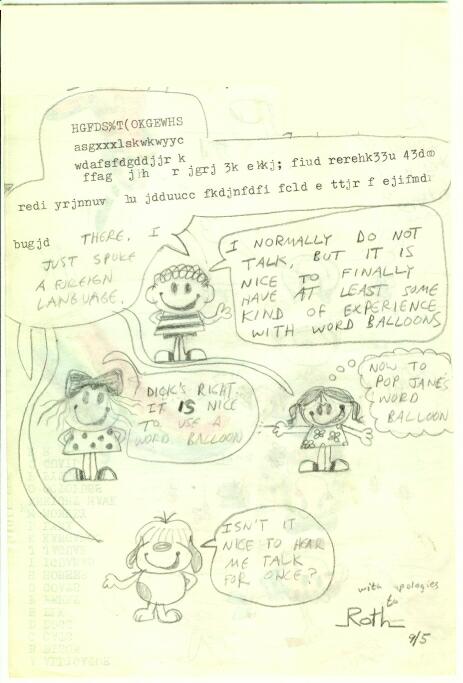 HGFDS%T(OKGEWHS
asgxxxlskwkwyyc
wdafsfdgddjjr k
ffag j h r jgrj 3k ekkj; fiud rerehk33u 43d
redi yrjnnuv lu jdduucc fkdjnfdfi fcld e ttjr f ejifmd
bugjd THERE, I
JUST SPOKE
A FOREIGN
LANGUAGE.
I NORMALLY DO NOT
TALK, BUT IT IS
NICE TO FINALLY
HAVE AT LEAST SOME
KIND OF EXPERIENCE
WITH WORD BALLOONS
DICK'S RIGHT.
IT IS NICE
TO USE A
WORD BALLOON
NOW TO
POP JANE'S
WORD
BALLOON
ISN'T IT
NICE TO HEAR
ME TALK
FOR ONCE?
with apologies
to
Roth
9/5